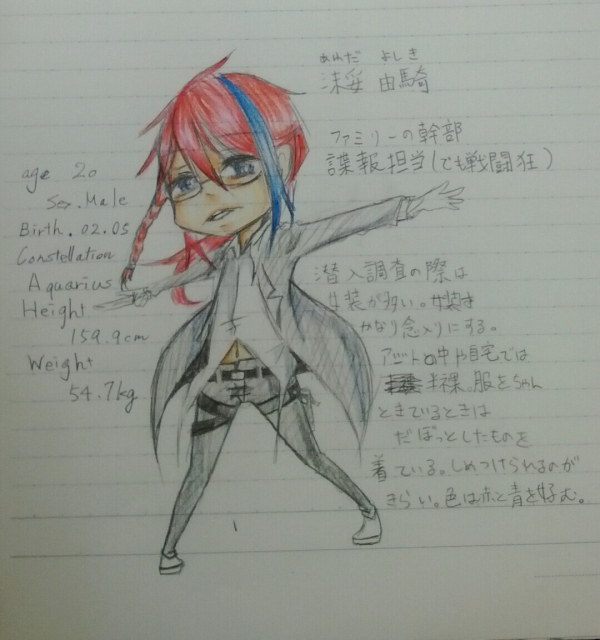 よしき
沫妥 由騎
ファミリーの幹部
諜報担当(でも戦闘狂)
age 20
Sex. Male
Birth. 02.05
Constellation
Aquarius
Height
159.9cm
Weight
54.7kg
潜入調査の際は
女装が多い。女装は
かなり念入りにする。
アジトの中や自宅では
半裸。服をちゃん
ときているときは
だぼっとしたものを
着ている。しめつけられるのが
きらい。色は赤と青を好む。